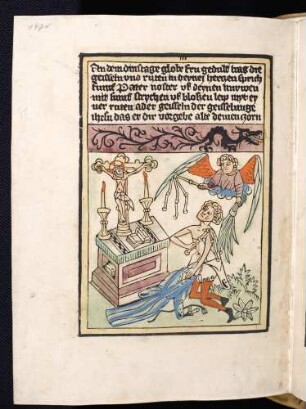 En dem dinstage glohe fru gedult trag die
geisseln vnd rutten in deynes hertzen sprich
funff Pater noster vff deynen knywen
mit funff streychen vff blossen leip myt ey
ner rutten ader geisseln der geisselunge
ihesu das er dir vergebe alle deinen zorn